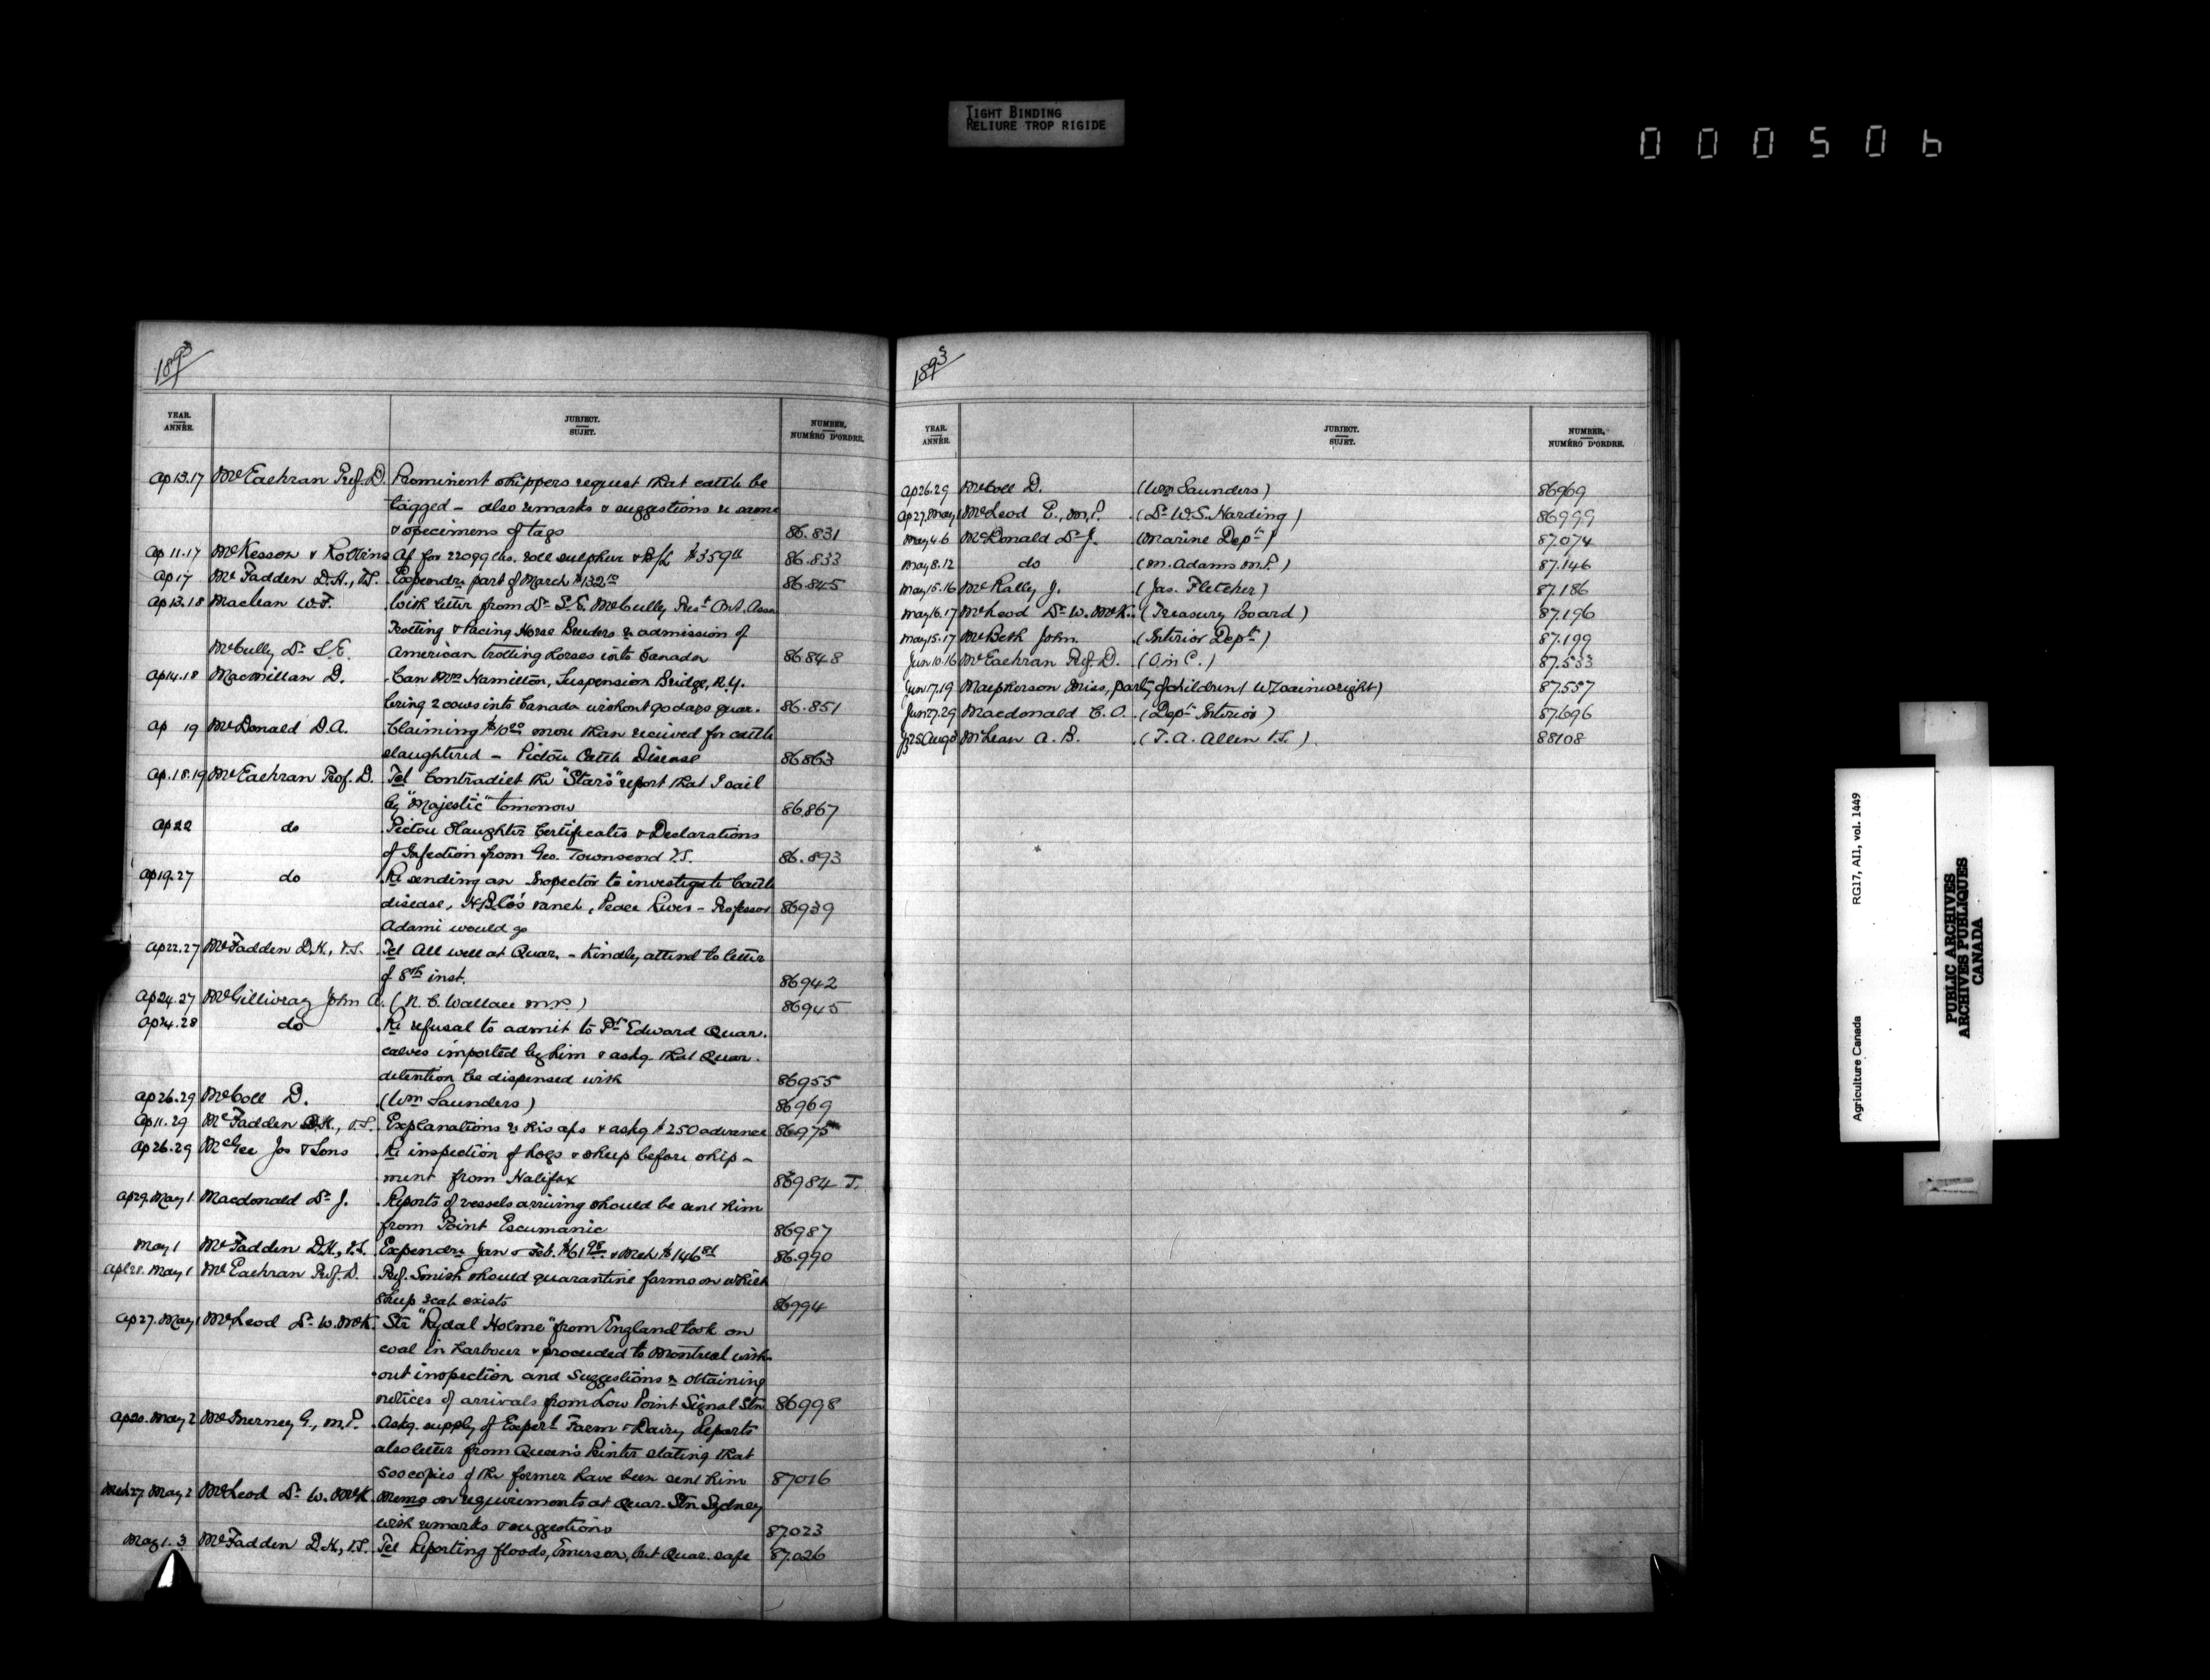 TIGHT BINDING
RELIURE TROP RIGIDE
000506
1893
YEAR.
ANNÉE.
SUBJECT.
SUJET.
NUMBER,
NUMÉRO D'ORDRE.
Ap 13.17 McEachran Prof. D. Prominent shippers request that cattle be
tagged – also remarks & suggestions re same
& specimens of tags 86.831
Ap 11.17 McKesson & Robbins Ac for 22099 lbs. roll sulphur & B/L $359
Ap 17 McFadden D.H., V.S. Expendre part of March $132 10 86.845
Ap 13.18 Maclean W.F. With letter from Dr S.E. McCully Rest Ont. Assn
Trotting & Pacing Horse Breeders re admission of
McCully Dr S.E. American trotting horses into Canada 86.848
Ap 14.18 Macmillan D. Can Mrs Hamilton, Suspension Bridge, N.Y.
bring 2 cows into Canada without 90 days quar. 86.851
Ap 19 McDonald D.A. Claiming $10 00 more than received for cattle
slaughtered – Pictou Cattle Disease 86.863
Ap. 18.19 McEachran Prof. D. Tel Contradict the "Star's" report that I sail
by "Majestic" tomorrow 86.867
Ap 22 do Pictou Slaughter Certificates & Declarations
of Infection from Geo. Townsend V.S. 86.893
Ap 19.27 do Re sending an Inspector to investigate Cattle
disease, H.B. Co's ranch, Peace River – Professor 86939
Adami would go
Ap 22.27 McFadden D.H., V.S. Tel All well at Quar. – Kindly attend to letter
of 8th inst. 86942
Ap 24.27 McGillivray John A. (N. C. Wallace M.P.) 86945
Ap 24.28 do Re refusal to admit to Pt Edward Quar.
calves imported by him & askg. that Quar.
detention be dispensed with 86955
Ap 26.29 McColl D. (Wm Saunders) 86969
Ap 11.29 McFadden D.H., V.S. Explanations re his aps & askg $250 advance 86975
Ap 26.29 McGee Jos & Sons Re inspection of hogs & sheep before ship-
ment from Halifax 86984 T.
Ap 29. May 1 Macdonald Dr J. Reports of vessels arriving should be sent him
from Point Escumanic 86987
May 1 McFadden D.H., V.S. Expendre Jan & Feb. $61 98 & Mch $146 86.990
Apl 28. May 1 McEachran Prof. D. Prof. Smith should quarantine farms on which
sheep scab exists 86994
Ap 27. May 1 McLeod Dr W. McK. Str "Rydal Holme" from England took on
coal in harbour & proceeded to Montreal with-
out inspection and suggestions re obtaining
notices of arrivals from Low Point Signal Stn 86998
Ap 20. May 2 McInerney G., M.P. Askg. supply of Experl Farm & Dairy Reports
also letter from Queen's Printer stating that
500 copies of the former have been sent him 87016
Mch 27. May 2 McLeod Dr W. McK. Memo on requirements at Quar. Stn Sydney
with remarks & suggestions 87023
May 1.3 McFadden D.H., V.S. Tel Reporting floods, Emerson, but Quar. safe 87.026
1893
YEAR.
ANNÉE.
SUBJECT.
SUJET.
NUMBER,
NUMÉRO D'ORDRE.
Ap 26.29 McColl D. (Wm Saunders) 86969
Ap 27. May 1 McLeod E., M.P. (Dr W.S. Harding) 86999
May 4.6 McDonald Dr J. (Marine Dept) 87074
May 8.12 do (M. Adams M.P.) 87.146
May 15.16 McRally J. (Jas. Fletcher) 87.186
May 16.17 McLeod Dr W. McK. (Treasury Board) 87.196
May 15.17 McBeth John. (Interior Dept) 87.199
Jun 10.16 McEachran Prof. D. (O in C.) 87.533
Jun 17.19 Macpherson Miss, party of children (W Wainwright) 87.557
Jun 27.29 Macdonald C.O. (Dept Interior) 87.696
Aug 8 McLean A. B. (T. A. Allen V.S.) 88108
Agriculture Canada RG17, A11, vol. 1449
PUBLIC ARCHIVES
ARCHIVES PUBLIQUES
CANADA